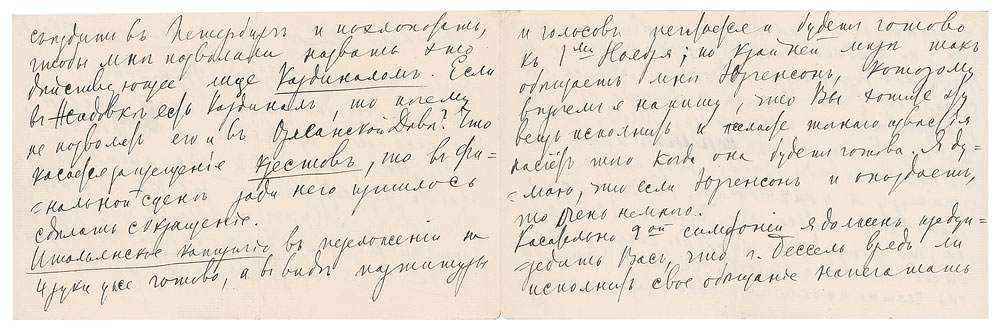 съѣздить въ Петербургъ и похлопотать,
чтобы мнѣ позволили назвать это
дѣйствующее лице Кардиналомъ. Если
въ Жидовкѣ есть Кардиналъ, то почему
не позволятъ его и въ Орлеанской Дѣвѣ? Что
касается запрещенiе крестовъ, то въ фи-
=нальной сценѣ ради него пришлось
сдѣлать сокращенiе.
Итальянское каприччiо въ переложенiи на
4 руки уже готово, а въ видѣ партитуры
и голосовъ печатается и будетъ готово
къ 1му Ноября; по крайней мѣрѣ такъ
обѣщаетъ мнѣ Юргенсонъ, которому
я напишу, что Вы хотите эту
вещь исполнить и желаете точнаго извѣстiя
насчетъ того когда она будетъ готова. Я ду-
=маю, что если Юргенсонъ и опоздаетъ,
то очень немного.
Касательно 2ой симфонiи я долженъ предуп-
=редить Васъ, что г. Бессель врядъ ли
исполнитъ свое обѣщанiе напечатать